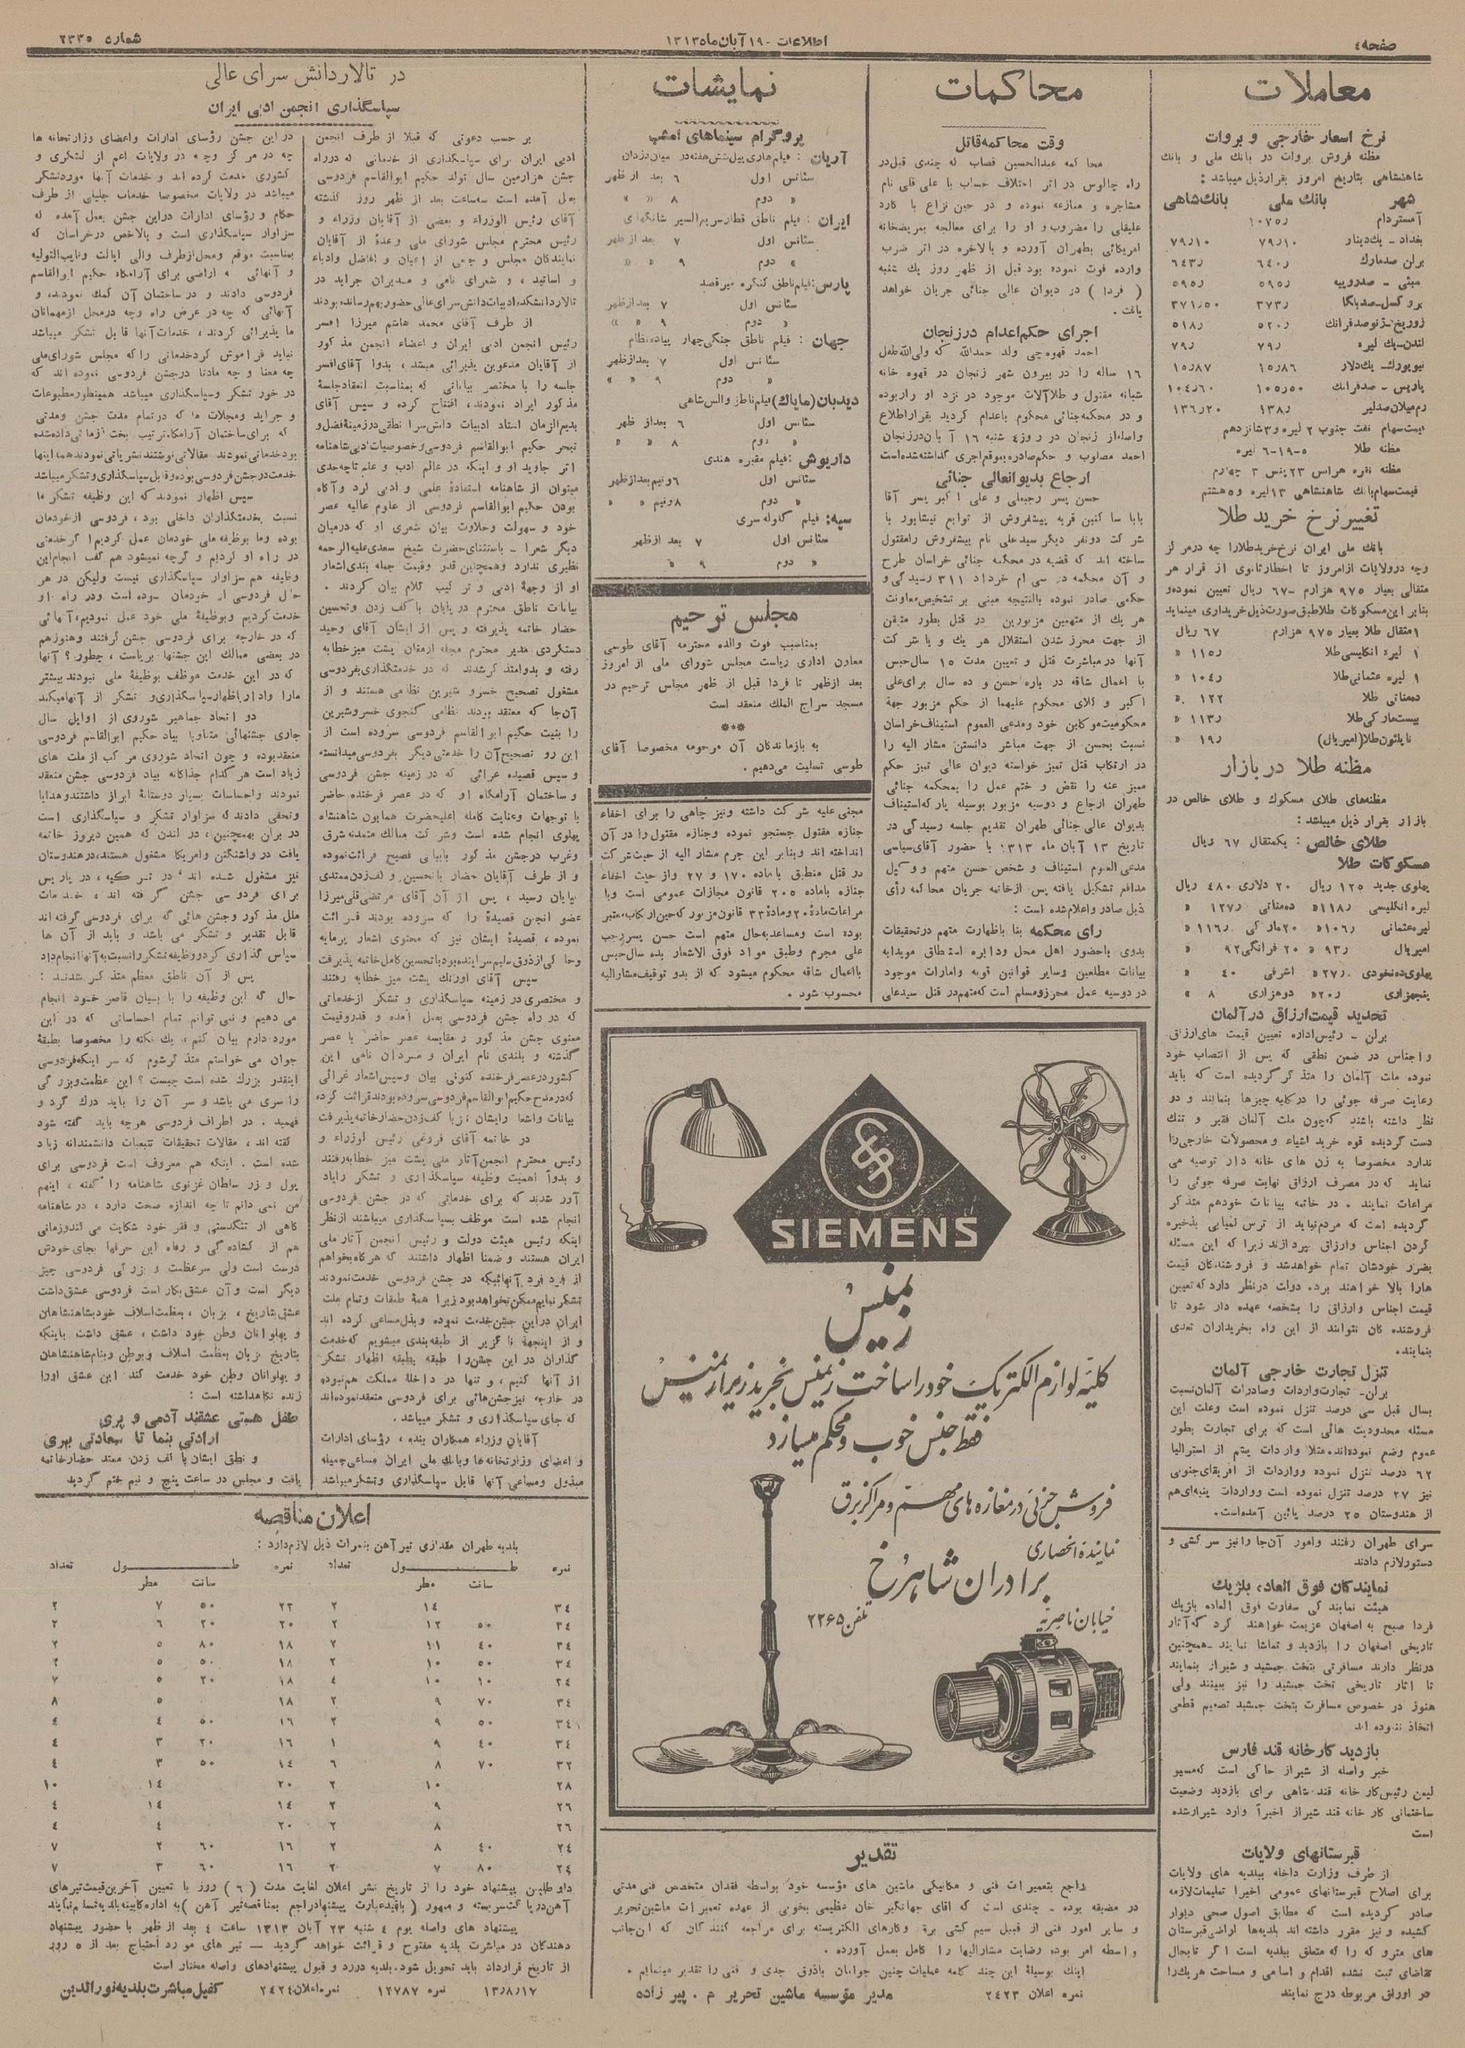 صفحه ۴
اطلاعات - ۱۹ آبان ماه ۱۳۱۳
شماره ۲۳۳۵
معاملات
نرخ اسعار خارجی و بروات
مظنه فروش بروات در بانک ملی و بانک
شاهنشاهی بتاریخ امروز بقرار ذیل میباشد :
شهر بانک ملی بانک شاهی
آمستردام
بغداد - یک دینار ۷۹٫۱۰ ۷۹٫۱۰
برلن صدمارک ۶۴۰٫ ۶۴۳٫
بمبئی - صدروپیه ۵۹۵٫ ۵۹۵٫
بروکسل - صد بلگا ۳۷۳٫ ۳۷۱٫۵۰
زوریخ - ژنو صد فرانک ۵۲۰٫ ۵۱۸٫
لندن - یک لیره ۷۹٫ ۷۹٫
نیویورک - یک دلار ۱۵٫۸۶ ۱۵٫۸۷
پاریس - صد فرانک ۱۰۵٫۵۰ ۱۰۴٫۶۰
رم میلان صد لیر ۱۳۸٫ ۱۳۶٫۲۰
قیمت سهام نفت جنوب ۲ لیره و ۳ شانزدهم
مظنه طلا ۵-۱۹-۶ لیره
مظنه نقره هر انس ۲۳ پنس ۳ چهارم
قیمت سهام بانک شاهنشاهی ۱۳ لیره و ۵ هشتم
تغییر نرخ خرید طلا
بانک ملی ایران نرخ خرید طلا را چه در مرکز
وچه در ولایات از امروز تا اخطار ثانوی از قرار هر
مثقالی بعیار ۹۷۵ هزارم ۶۷- ریال تعیین نموده و
بنابر این مسکوکات طلا طبق صورت ذیل خریداری مینماید
۱ مثقال طلا بعیار ۹۷۵ هزارم ۶۷ ریال
۱ لیره انگلیسی طلا ۱۱۵٫ »
۱ لیره عثمانی طلا ۱۰۴٫ »
ده مناتی طلا ۱۲۲ »
بیست مارکی طلا ۱۱۳٫ »
ناپلئون طلا (امپریال) ۱۹٫ »
مظنه طلا در بازار
مظنه‌های طلای مسکوک و طلای خالص در
بازار بقرار ذیل میباشد :
طلای خالص : یکمثقال ۶۷ ریال
مسکوکات طلا
پهلوی جدید ۱۲۵ ریال ۲۰ دلاری ۴۸۰ ریال
لیره انگلیسی ۱۱۸٫» ده مناتی ۱۲۷٫ »
لیره عثمانی ۱۰۶٫» ۲۰ مارکی ۱۱۶٫ »
امپریال ۹۳٫ » ۲۰ فرانکی ۹۲ »
پهلوی ده نخودی ۲۷٫» اشرفی ۴۰ »
پنجهزاری ۲۰٫» دوهزاری ۸ »
تحدید قیمت ارزاق در آلمان
برلن - رئیس اداره تعیین قیمت های ارزاق
و اجناس در ضمن نطقی که پس از انتصاب خود
نموده ملت آلمان را متذکر گردیده است که باید
رعایت صرفه جوئی را در کلیه چیزها بنمایند و در
نظر داشته باشند که چون ملت آلمان فقیر و تنگ
دست گردیده قوه خرید اشیاء و محصولات خارجی را
ندارد مخصوصا به زن های خانه دار توصیه می
نماید که در مصرف ارزاق نهایت صرفه جوئی را
مراعات نمایند . در خاتمه بیانات خود هم متذکر
گردیده است که مردم نباید از ترس کمیابی بذخیره
کردن اجناس وارزاق بپردازند زیرا که این مسئله
بضرر خودشان تمام خواهد شد و فروشندگان قیمت
هارا بالا خواهند برد. دولت در نظر دارد که تعیین
قیمت اجناس وارزاق را بشخصه عهده دار شود تا
فروشنده گان نتوانند از این راه بخریداران تعدی
بنمایند.
تنزل تجارت خارجی آلمان
برلن- تجارت واردات و صادرات آلمان نسبت
بسال قبل سی درصد تنزل نموده است وعلت این
مسئله محدودیت هائی است که برای تجارت بطور
عموم وضع نموده اند. مثلا واردات پشم از استرالیا
۶۲ درصد تنزل نموده وواردات از افریقای جنوبی
نیز ۲۷ درصد تنزل نموده است وواردات پنبه ای هم
از هندوستان ۲۵ درصد پائین آمده است.
سرای طهران رفتند وامور آنجا را نیز سرکشی و
دستور لازم دادند
نمایندگان فوق العاده بلژیک
هیئت نمایندگی سفارت فوق العاده بلژیک
فردا صبح به اصفهان عزیمت خواهند کرد که آثار
تاریخی اصفهان را بازدید و تماشا نمایند - همچنین
درنظر دارند مسافرتی بتخت جمشید و شیراز بنمایند
تا آثار تاریخی تخت جمشید را نیز ببینند ولی
هنوز در خصوص مسافرت بتخت جمشید تصمیم قطعی
اتخاذ ننموده اند
بازدید کارخانه قند فارس
خبر واصله از شیراز حاکی است که مسیو
لیون رئیس کارخانه قند شاهی برای بازدید وضعیت
ساختمانی کارخانه قند شیراز اخیراً وارد شیراز شده
است
قبرستانهای ولایات
از طرف وزارت داخله ببلدیه های ولایات
برای اصلاح قبرستانهای عمومی اخیرا تعلیمات لازمه
صادر گردیده است که مطابق اصول صحی دیوار
کشیده و نیز مقرر داشته اند بلدیه‌ها اراضی قبرستان
های متروکه را که متعلق ببلدیه است اگر تابحال
تقاضای ثبت نشده اقدام و اسامی و مساحت هریک را
در اوراق مربوطه درج نمایند
محاکمات
وقت محاکمه قاتل
محاکمه عبدالحسین قصاب که چندی قبل در
راه چالوس در اثر اختلاف حساب با علی قلی نام
مشاجره و منازعه نموده و در حین نزاع با کارد
علیقلی را مضروب و او را برای معالجه بمریضخانه
امریکائی بطهران آورده و بالاخره در اثر ضرب
وارده فوت نموده بود قبل از ظهر روز یک شنبه
( فردا ) در دیوان عالی جنائی جریان خواهد
یافت.
اجرای حکم اعدام در زنجان
احمد قهوه چی ولد حمدالله که ولی الله طفل
۱۶ ساله را در بیرون شهر زنجان در قهوه خانه
شبانه مقتول و طلاآلات موجود در نزد او را ربوده
و در محکمه جنائی محکوم باعدام گردید بقرار اطلاع
واصله از زنجان در روز ۴ شنبه ۱۶ آبان در زنجان
احمد مصلوب و حکم صادره بموقع اجری گذاشته شده است
ارجاع بدیوانعالی جنائی
حسن پسر رجبعلی و علی اکبر پسر آقا
بابا ساکنین قریه بیشفروش از توابع نیشابور با
شرکت دونفر دیگر سید علی نام بیشفروش را مقتول
ساخته اند که قضیه در محکمه جنائی خراسان طرح
و آن محکمه در سی ام خرداد ۳۱۱ رسیدگی و
حکمی صادر نموده بالنتیجه مبنی بر تشخیص معاونت
هر یک از متهمین مزبورین در قتل بطور متیقن
از جهت محرز نشدن استقلال هر یک و یا شرکت
آنها در مباشرت قتل و تعیین مدت ۱۵ سال حبس
با اعمال شاقه در باره حسن و ده سال برای علی
اکبر و کلای محکوم علیهما از حکم مزبور جهة
محکومیت موکلین خود ومدعی العموم استیناف خراسان
نسبت بحسن از جهت مباشر دانستن مشار الیه را
در ارتکاب قتل تمیز خواسته دیوان عالی تمیز حکم
ممیز عنه را نقض و ختم عمل را بمحکمه جنائی
طهران ارجاع و دوسیه مزبور بوسیله پارکه استیناف
بدیوان عالی جنائی طهران تقدیم جلسه رسیدگی در
تاریخ ۱۳ آبان ماه ۳۱۳؛ با حضور آقای سیاسی
مدعی العموم استیناف و شخص حسن متهم و وکیل
مدافع تشکیل یافته پس از خاتمه جریان محاکمه رأی
ذیل صادر واعلام شده است :
رای محکمه بنا باظهارت متهم در تحقیقات
بدوی باحضور اهل محل ودایره استنطاق مویدابه
بیانات مطلعین وسایر قوانین قویه وامارات موجود
در دوسیه عمل محرز ومسلم است که متهم در قتل سید علی
مجنی علیه شرکت داشته ونیز چاهی را برای اخفاء
جنازه مقتول جستجو نموده وجنازه مقتول را در آن
انداخته اند وبنابر این جرم مشار الیه از حیث شرکت
در قتل منطبق باماده ۱۷۰ و ۲۷ واز حیث اخفاء
جنازه باماده ۲۰۵ قانون مجازات عمومی است وبا
مراعات ماده ۲۰ وماده ۳۳ قانون مزبور که حین ارتکاب معتبر
بوده است ومساعد بحال متهم است حسن پسر رجب
علی مجرم وطبق مواد فوق الاشعار بده سال حبس
بااعمال شاقه محکوم میشود که از بدو توقیف مشارالیه
محسوب شود.
نمایشات
پروگرام سینماهای امشب
آریان :
سئانس اول ۶ بعد از ظهر
» دوم ۸ » »
ایران : فیلم ناطق قطار سریع السیر شانگهای
سئانس اول ۷ بعد از ظهر
» دوم ۹ » »
پارس: فیلم ناطق کنگره میرقصد
سئانس اول ۷ بعد از ظهر
» دوم ۹ » »
جهان : فیلم ناطق جنگی چهار پیاده نظام
سئانس اول ۷ بعد از ظهر
» دوم ۹ » »
دیدبان (مایاک) فیلم ناطق والس شاهی
سئانس اول ۶ بعد از ظهر
» دوم ۸ » »
داریوش : فیلم مقبره هندی
سئانس اول ۶ ونیم بعد از ظهر
» دوم ۸ ونیم » »
سپه: فیلم گلوله سری
سئانس اول ۷ بعد از ظهر
» دوم ۹ »
مجلس ترحیم
بمناسبت فوت والده محترمه آقای طوسی
معاون اداری ریاست مجلس شورای ملی از امروز
بعد از ظهر تا فردا قبل از ظهر مجلس ترحیم در
مسجد سراج الملک منعقد است
***
به بازماندگان آن مرحومه مخصوصا آقای
طوسی تسلیت می‌دهیم.
SIEMENS
زیمنس
کلیه لوازم الکتریک خود را ساخت زیمنس بخرید زیرا زیمنس
فقط جنس خوب و محکم میسازد
فروش جزئی در مغازه های مهم و مراکز برق
نماینده انحصاری
برادران شاهرخ
خیابان ناصریه
تلفن ۲۲۶۵
تقدیر
راجع بتعمیرات فنی و مکانیکی ماشین های مؤسسه خود بواسطه فقدان متخصص فنی مدتی
در مضیقه بوده - چندی است که آقای جهانگیر خان عظیمی بخوبی از عهده تعمیرات ماشین تحریر
و سایر امور فنی از قبیل سیم کشی برق وکارهای الکتریسته برای مراجعه کنندگان که اینجانب
واسطه امر بوده رضایت مشارالیها را کامل بعمل آورده.
اینک بوسیلهٔ این چند کلمه عملیات چنین جوانان باذوق جدی و فنی را تقدیر مینمایم.
نمره اعلان ۲۴۲۳ مدیر مؤسسه ماشین تحریر م. پیرزاده
در تالار دانش سرای عالی
سپاسگذاری انجمن ادبی ایران
بر حسب دعوتی که قبلا از طرف انجمن
ادبی ایران برای سپاسگذاری از خدماتی که در راه
جشن هزارمین سال تولد حکیم ابوالقاسم فردوسی
بعمل آمده است سه ساعت بعد از ظهر روز گذشته
آقای رئیس الوزراء و بعضی از آقایان وزراء و
رئیس محترم مجلس شورای ملی وعدهٔ از آقایان
نمایندگان مجلس و جمعی از اعیان و افاضل وادباء
و اساتید ، و شعرای نامی و مدیران جراید در
تالار دانشکده ادبیات دانش سرای عالی حضور بهم رسانده بودند
از طرف آقای محمد هاشم میرزا افسر
رئیس انجمن ادبی ایران و اعضاء انجمن مذکور
از آقایان مدعوین پذیرائی میشد ، بدوا آقای افسر
جلسه را با مختصر بیاناتی که بمناسبت انعقاد جلسهٔ
مذکور ایراد نمودند، افتتاح کرده و سپس آقای
بدیع الزمان استاد ادبیات دانش سرا نطقی در زمینهٔ فضل و
تبحر حکیم ابوالقاسم فردوسی وخصوصیات ادبی شاهنامه
اثر جاوید او و اینکه در عالم ادب و علم تا چه حدی
میتوان از شاهنامه استفادهٔ علمی و ادبی کرد وآگاه
بودن حکیم ابوالقاسم فردوسی از علوم عالیه عصر
خود و سهولت وحلاوت بیان شعری او که درمیان
دیگر شعرا - باستثنای حضرت شیخ سعدی علیه الرحمه
نظیری ندارد وهمچنین قدر وقیمت جمله بندی اشعار
او از وجههٔ ادبی و ترکیب کلام بیان کردند.
بیانات ناطق محترم در پایان با کف زدن وتحسین
حضار خاتمه پذیرفته و پس از ایشان آقای وحید
دستگردی مدیر محترم مجله ارمغان پشت میز خطابه
رفته و بدوا متذکر شدند که در خدمتگذاری بفردوسی
مشغول تصحیح خسرو شیرین نظامی هستند و از
آنجا که معتقد بودند نظامی گنجوی خسرو شیرین
را بنیت حکیم ابوالقاسم فردوسی سروده است از
این رو تصحیح آن را خدمتی دیگر بفردوسی میدانسته
و سپس قصیده غرائی که در زمینه جشن فردوسی
و ساختمان آرامگاه او که در عصر فرخنده حاضر
با توجهات وعنایت کامله اعلیحضرت همایون شاهنشاه
پهلوی انجام شده است وشرکت ممالک متمدنه شرق
وغرب در جشن مذکور بابیانی فصیح قرائت نموده
و از طرف آقایان حضار باتحسین و کف زدن ممتدی
بپایان رسید ، پس از آن آقای مرتضی قلی میرزا
عضو انجمن قصیدهٔ را که سروده بودند قرائت
نموده ، قصیدهٔ ایشان نیز که محتوی اشعار پرمایه
وحاکی از ذوق سلیم سراینده بود با تحسین کامل خاتمه پذیرفت
سپس آقای اورنگ پشت میز خطابه رفتند
و مختصری در زمینه سپاسگذاری و تشکر از خدماتی
که در راه جشن فردوسی بعمل آمده و قدر وقیمت
معنوی جشن مذکور و مقایسه عصر حاضر با عصر
گذشته و بلندی نام ایران و مردان نامی این
کشور در عصر فرخنده کنونی بیان وسپس اشعار غرائی
که در مدح حکیم ابوالقاسم فردوسی سروده بودند قرائت کرده،
بیانات واشعار ایشان نیز با کف زدن حضار خاتمه پذیرفت
در خاتمه آقای فروغی رئیس الوزراء و
رئیس محترم انجمن آثار ملی پشت میز خطابه رفتند
و بدوا اهمیت وظیفه سپاسگذاری و تشکر را یاد
آور شدند که برای خدماتی که در جشن فردوسی
انجام شده است موظف بسپاسگذاری میباشند از نظر
اینکه رئیس هیئت دولت و رئیس انجمن آثار ملی
ایران هستند و ضمنا اظهار داشتند که هرگاه بخواهم
از فرد فرد آنهائیکه در جشن فردوسی خدمت نمودند
تشکر نمایم ممکن نخواهد بود زیرا همهٔ طبقات وتمام ملت
ایران در این جشن خدمت نموده وبذل مساعی کرده اند
و از اینجهة ناگزیر از طبقه بندی میشویم که خدمت
گذاران در این جشن را طبقه بطبقه اظهار تشکر
از آنها کنیم ، و تنها در داخلهٔ مملکت هم نبوده
در خارجه نیز جشن هائی برای فردوسی منعقد نموده اند
که جای سپاسگذاری و تشکر میباشد.
آقایان وزراء همکاران بنده ، رؤسای ادارات
و اعضای وزارتخانه ها وبانک ملی ایران مساعی جمیله
مبذول ومساعی آنها قابل سپاسگذاری وتشکر میباشد
در این جشن رؤسای ادارات واعضای وزارتخانه ها
چه در مرکز وچه در ولایات اعم از لشکری و
کشوری خدمت کرده اند و خدمات آنها مورد تشکر
میباشد در ولایات مخصوصا خدمات جلیلی از طرف
حکام و رؤسای ادارات در این جشن بعمل آمده که
سزاوار سپاسگذاری است و بالاخص در خراسان که
بمناسبت موقع ومحل از طرف والی ایالت ونایب التولیه
و آنهائی که اراضی برای آرامگاه حکیم ابوالقاسم
فردوسی دادند و در ساختمان آن کمک نمودند، و
آنهائی که چه در عرض راه وچه در محل از مهمانان
ما پذیرائی کردند، خدمات آنها قابل تشکر میباشد
نباید فراموش کرد خدماتی را که مجلس شورای ملی
چه معنا و چه مادتا در جشن فردوسی نموده اند که
در خور تشکر وسپاسگذاری میباشد همینطور مطبوعات
و جراید ومجلات ما که در تمام مدت جشن ومدتی
که برای ساختمان آرامگاه ترتیب بخت آزمائی داده شده
بود خدماتی نمودند مقالاتی نوشتند نشریاتی نمودند همه اینها
خدمت در جشن فردوسی بوده وقابل سپاسگذاری وتشکر میباشد
سپس اظهار نمودند که این وظیفه تشکر ما
نسبت بخدمتگذاران داخلی بود ، فردوسی از خودمان
بوده وما بوظیفه ملی خودمان عمل کردیم اگر خدمتی
در راه او کردیم و گرچه نمیشود هم گفت انجام این
وظیفه هم سزاوار سپاسگذاری نیست ولیکن در هر
حال فردوسی از خودمان بوده است ودر راه او
خدمت کردیم وبوظیفهٔ ملی خود عمل نمودیم، آنهائی
که در خارجه برای فردوسی جشن گرفتند وهنوز هم
در بعضی ممالک این جشنها برپاست ، چطور ؟ آنها
که در این خدمت موظف بوظیفهٔ ملی نبودند بیشتر
مارا وادار اظهار سپاسگذاری و تشکر از آنها میکند
در اتحاد جماهیر شوروی از اوایل سال
جاری جشنهائی متناوبا بیاد حکیم ابوالقاسم فردوسی
منعقد بوده و چون اتحاد شوروی مرکب از ملت های
زیاد است هر کدام جداگانه بیاد فردوسی جشن منعقد
نمودند واحساسات بسیار دوستانهٔ ابراز داشتند وهدایا
وتحفی دادند که سزاوار تشکر و سپاسگذاری است
در برلن بهمچنین ، در لندن که همین دیروز خاتمه
یافت در واشنگتن وامریکا مشغول هستند، در هندوستان
نیز مشغول شده اند ، در ترکیه ، در پاریس
برای فردوسی جشن گرفته اند ، خدمات
ملل مذکور وجشن هائی که برای فردوسی گرفته اند
قابل تقدیر و تشکر می باشد و باید از آن ها
سپاس گذاری کرد ووظیفه تشکر را نسبت به آنها انجام داد
پس از آن ناطق معظم متذکر شدند :
حال که این وظیفه را با بیان قاصر خود انجام
می دهیم و نمی توانم تمام احساساتی که در این
مورد دارم بیان کنم، یک نکته را مخصوصا بطبقهٔ
جوان می خواستم متذکر شوم که سر اینکه فردوسی
اینقدر بزرگ شده است چیست ؟ این عظمت وبزرگی
را سری می باشد و سر آن را باید درک کرد و
فهمید. در اطراف فردوسی هرچه باید گفته شود
گفته اند ، مقالات تحقیقات تتبعات دانشمندانه زیاد
شده است. اینکه هم معروف است فردوسی برای
پول و زر سلطان غزنوی شاهنامه را گفته ، اینهم
من نمی دانم تا چه اندازه صحت دارد ، در شاهنامه
گاهی از تنگدستی و فقر خود شکایت می کند وزمانی
هم از گشاده گی و رفاه این حرفها بجای خودش
درست است ولی سر عظمت و بزرگی فردوسی چیز
دیگر است وآن عشق بکار است فردوسی عشق داشت
عشق بتاریخ ، بزبان ، بعظمت اسلاف خود بشاهنشاهان
و پهلوانان وطن خود داشت ، عشق داشت باینکه
بتاریخ بزبان بعظمت اسلاف وبوطن وبنام شاهنشاهان
و پهلوانان وطن خود خدمت کند، این عشق اورا
زنده نگاهداشته است :
طفل هستی عشقند آدمی و پری
ارادتی بنما تا سعادتی ببری
و نطق ایشان با کف زدن ممتد حضار خاتمه
یافت و مجلس در ساعت پنج و نیم ختم گردید
اعلان مناقصه
بلدیه طهران مقداری تیرآهن بنمرات ذیل لازم دارد :
نمره طول تعداد نمره طول تعداد
سانت مطر سانت مطر
۳۴ ۱۴ ۲ ۲۲ ۵۰ ۷ ۲
۳۴ ۵۰ ۱۲ ۲ ۲۰ ۲۰ ۶ ۲
۳۴ ۴۰ ۱۱ ۲ ۱۸ ۸۰ ۵ ۲
۳۴ ۵۰ ۱۰ ۲ ۱۸ ۵۰ ۵ ۴
۲۴ ۱۰ ۱۰ ۴ ۱۸ ۲۰ ۵ ۷
۳۴ ۷۰ ۹ ۲ ۱۸ ۵ ۸
۳۴ ۵۰ ۹ ۲ ۱۶ ۵۰ ۴ ۴
۳۴ ۴۰ ۹ ۱ ۱۶ ۲۰ ۳ ۴
۳۲ ۷۰ ۸ ۶ ۱۴ ۵۰ ۳ ۴
۲۸ ۱۰ ۲ ۲۰ ۱۴ ۱۰
۲۶ ۹ ۲ ۱۴ ۱۴ ۴
۲۶ ۸ ۲ ۲۰ ۴ ۴
۲۴ ۴۰ ۸ ۲ ۱۶ ۶۰ ۲ ۷
۲۴ ۸۰ ۷ ۲۰ ۱۶ ۶۰ ۳ ۷
داوطلبین پیشنهاد خود را از تاریخ نشر اعلان لغایت مدت ( ۶ ) روز با تعیین آخرین قیمت تیرهای
آهن در پاکت سربسته و ممهور (باقید عبارت پیشنهاد راجع بمناقصه تیر آهن ) به اداره کابینه بلدیه تسلیم نمایند
پیشنهاد های واصله یوم ۴ شنبه ۲۳ آبان ۱۳۱۳ ساعت ۴ بعد از ظهر با حضور پیشنهاد
دهندگان در مباشرت بلدیه مفتوح و قرائت خواهد گردید - تیر های مورد احتیاج بعد از ۵ روز
از تاریخ قرارداد باید تحویل شود. بلدیه در رد و قبول پیشنهادهای واصله مختار است
۱۳/۸/۱۷ نمره ۱۲۷۸۷ نمره اعلان ۲۴۲۴ کفیل مباشرت بلدیه نورالدین